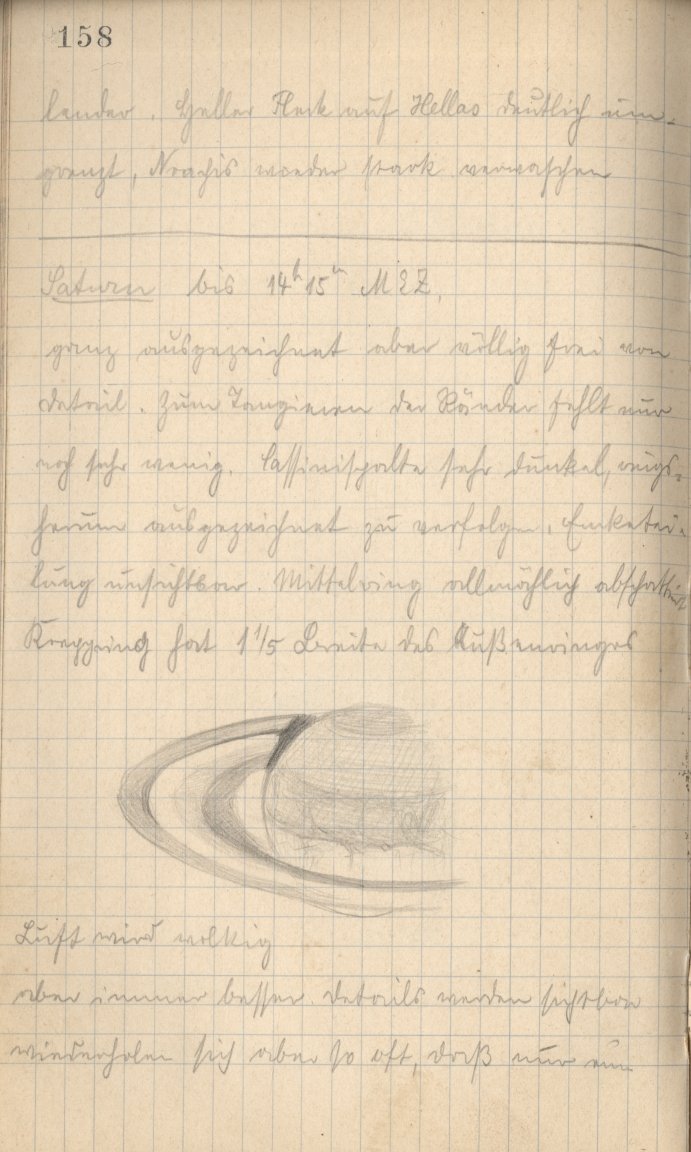 158
lender. Heller Fleck auf Hellas deutlich um-
grenzt, Noachis wieder stark verwaschen
Saturn bis 14h 15m MEZ.
ganz ausgezeichnet aber völlig frei von
Detail. Zum Tangieren der Ränder fehlt nur
noch sehr wenig. Cassinispalte sehr dunkel, rings-
herum ausgezeichnet zu verfolgen. Enketei-
lung unsichtbar. Mittelring allmählich abschattiert
Kreppring hat 1 1/5 Breite des Außenringes
Luft wird wolkig
aber immer besser. Details werden sichtbar
wiederholen sich aber so oft, daß nur